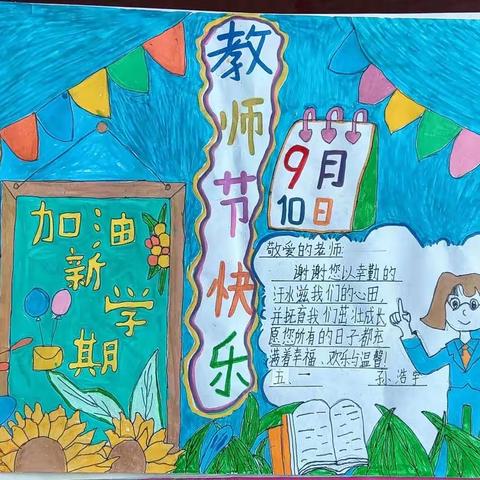 教师节快乐
加油
新
学
期
9月
10日
敬爱的老师
谢谢您以幸勤的
汗水滋我们的心田,
并抚育我们茁壮成长
愿您所有的日子都充
满着幸福、欢乐与温馨!
五、一 孙浩宇